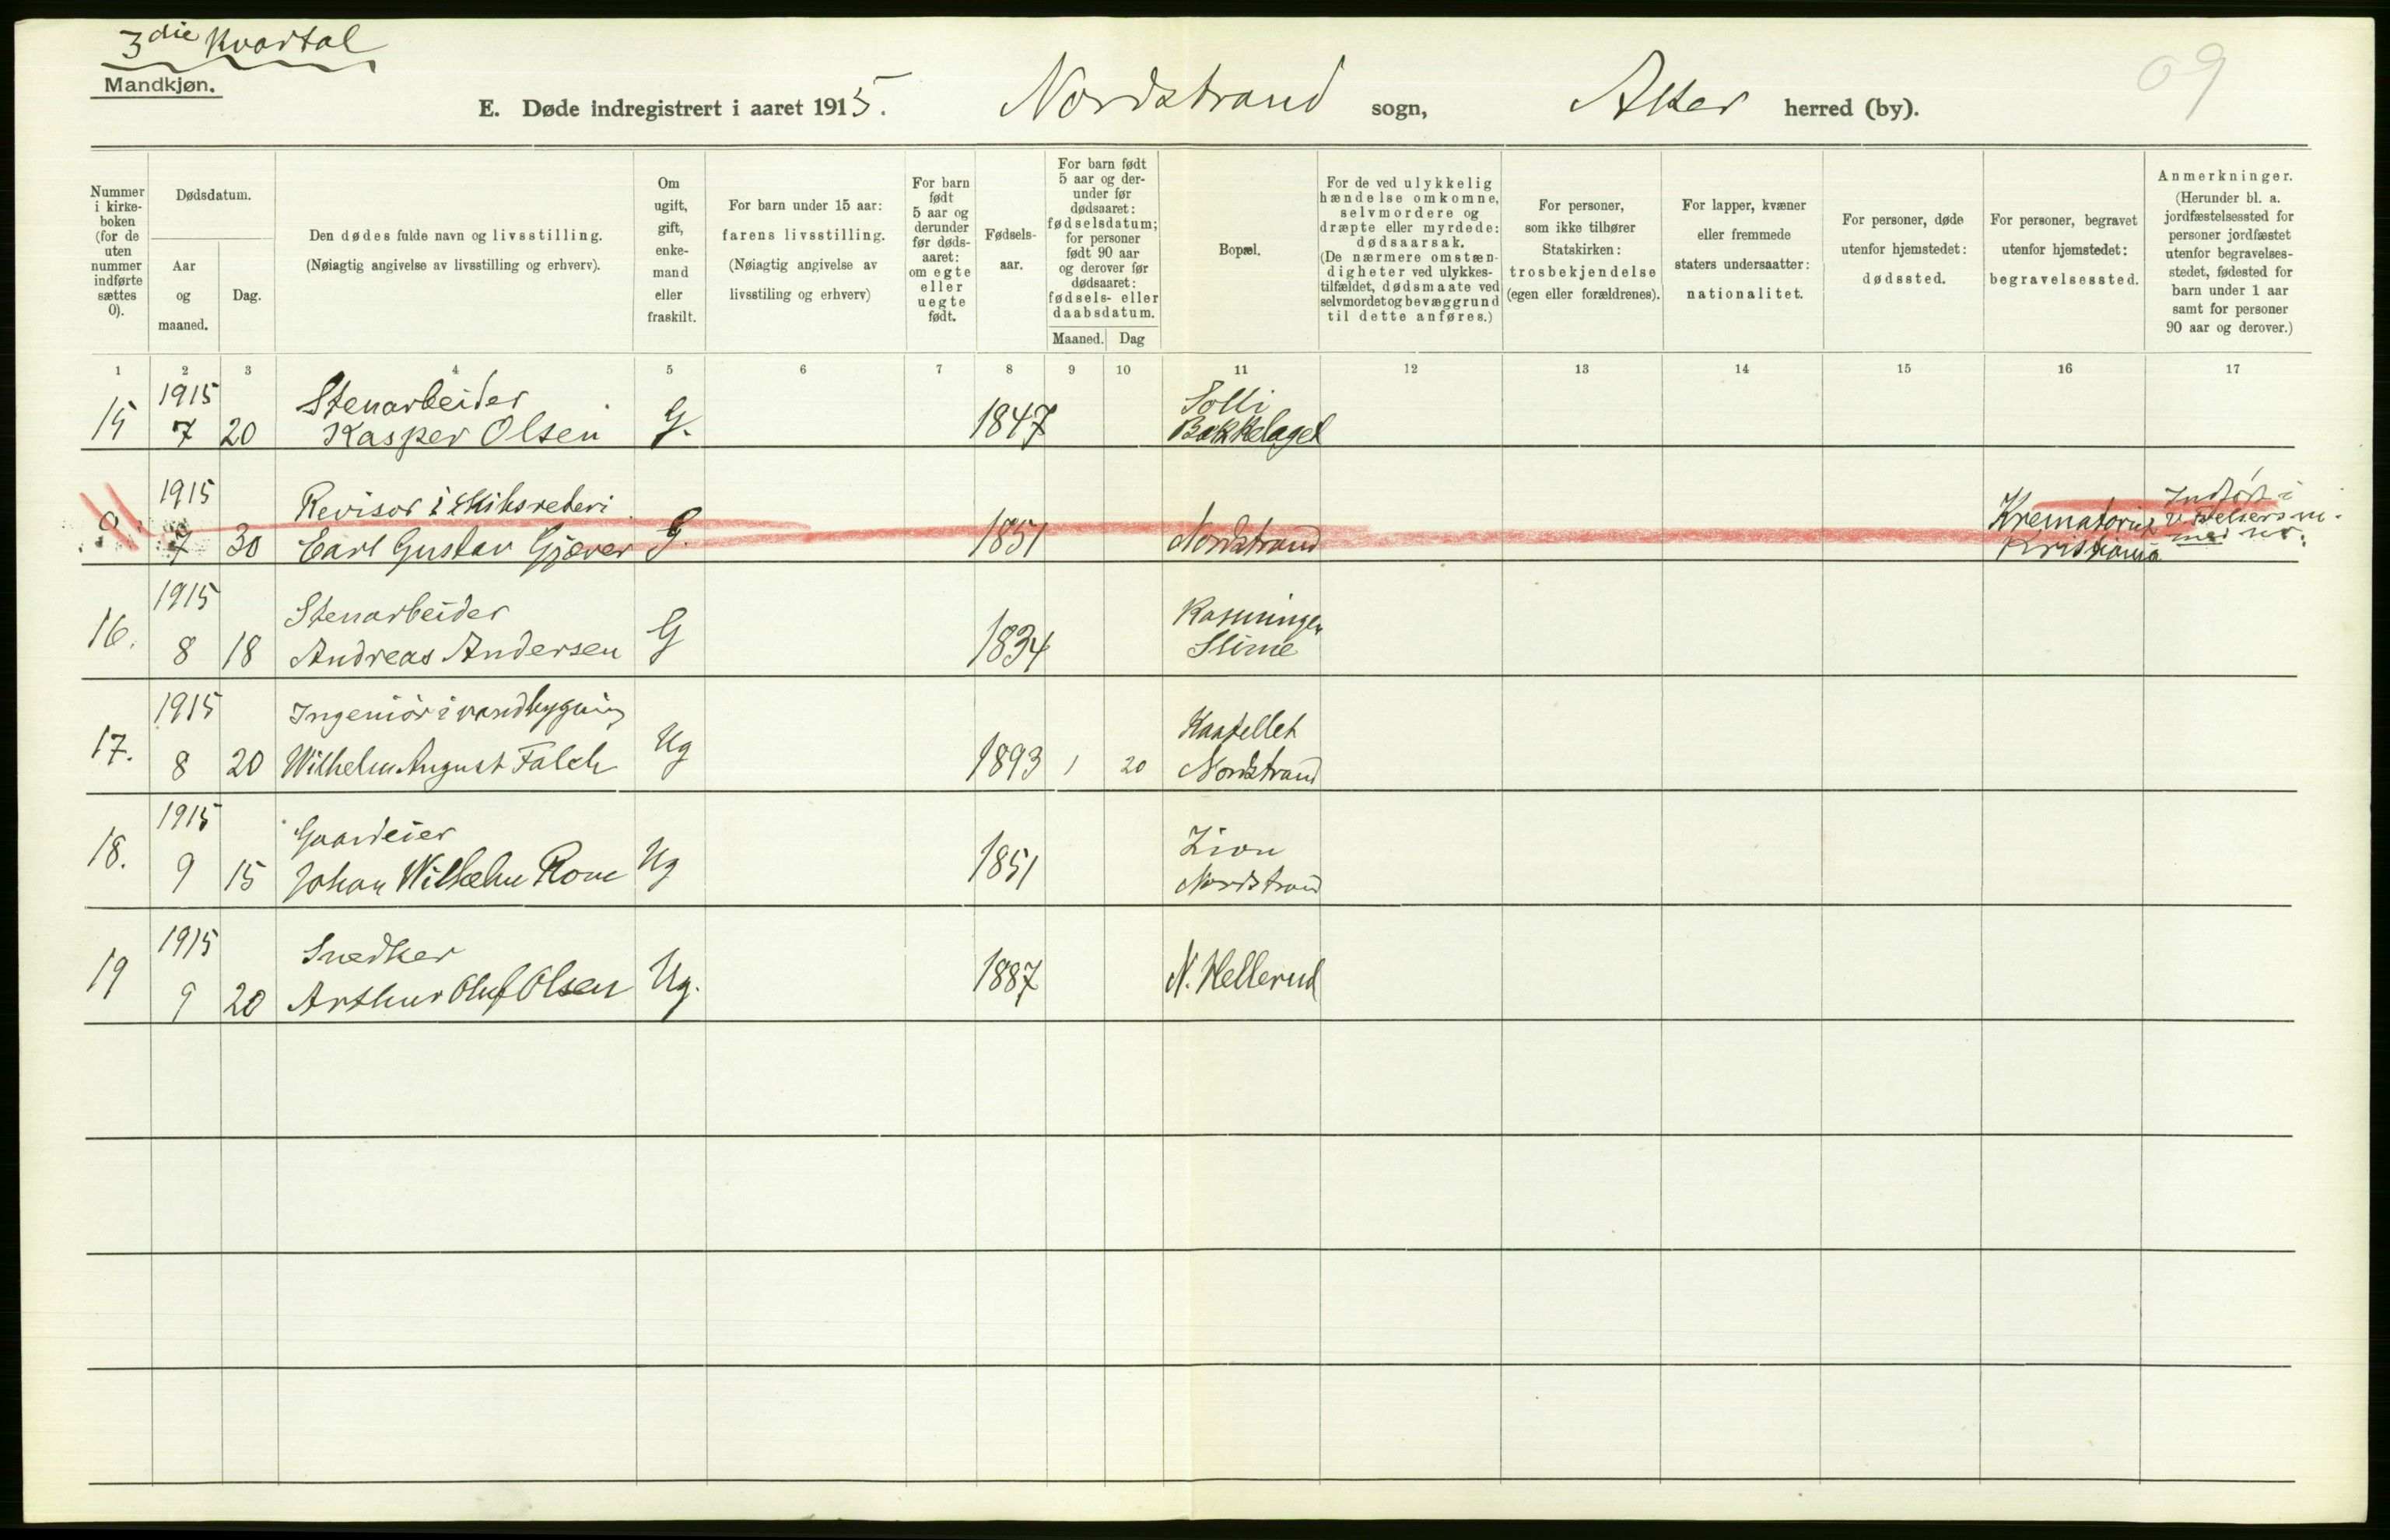 3die Kvartal
Mandkjøn.
E. Døde indregistrert i aaret 1915. Nordstrand sogn, Aker herred (by).
09
Nummer i kirke-boken (for de uten nummer indførte sættes 0).
Dødsdatum.
Aar og maaned.
Dag.
Den dødes fulde navn og livsstilling.
(Nøiagtig angivelse av livsstilling og erhverv).
Om ugift, gift, enke-mand eller fraskilt.
For barn under 15 aar: farens livsstilling.
(Nøiagtig angivelse av livsstiling og erhverv)
For barn født 5 aar og derunder før døds-aaret: om egte eller uegte født.
Fødsels-aar.
For barn født 5 aar og der-under før dødsaaret: fødselsdatum; for personer født 90 aar og derover før dødsaaret: fødsels- eller daabsdatum.
Maaned. Dag
Bopæl.
For de ved ulykkelig hændelse omkomne, selvmordere og dræpte eller myrdede: dødsaarsak.
(De nærmere omstæn-digheter ved ulykkes-tilfældet, dødsmaate ved selvmordet og bevæggrund til dette anføres.)
For personer, som ikke tilhører Statskirken: trosbekjendelse (egen eller forældrenes).
For lapper, kvæner eller fremmede staters undersaatter: nationalitet.
For personer, døde utenfor hjemstedet: dødssted.
For personer, begravet utenfor hjemstedet: begravelsessted.
Anmerkninger.
(Herunder bl. a. jordfæstelsessted for personer jordfæstet utenfor begravelses-stedet, fødested for barn under 1 aar samt for personer 90 aar og derover.)
1 2 3 4 5 6 7 8 9 10 11 12 13 14 15 16 17
1915 Stenarbeider Solli
15 7 20 Kasper Olsen G. 1847 Bækkelaget
1915 Revisor i Skibsrederi Krematoriet Indført i
0 7 30 Carl Gustav Gjæver G. 1851 Nordstrand Kristiania med nr.
1915 Stenarbeider
16. 8 18 Andreas Andersen G 1834 Slime
1915 Ingeniør i vandbygning Kastellet
17. 8 20 Wilhelm August Falch Ug 1893 1 20 Nordstrand
1915 Gaardeier Zion
18. 9 15 Johan Wilhelm Rom Ug 1851 Nordstrand
1915 Snedker
19 9 20 Arthur Oluf Olsen Ug. 1887 N. Hellerud